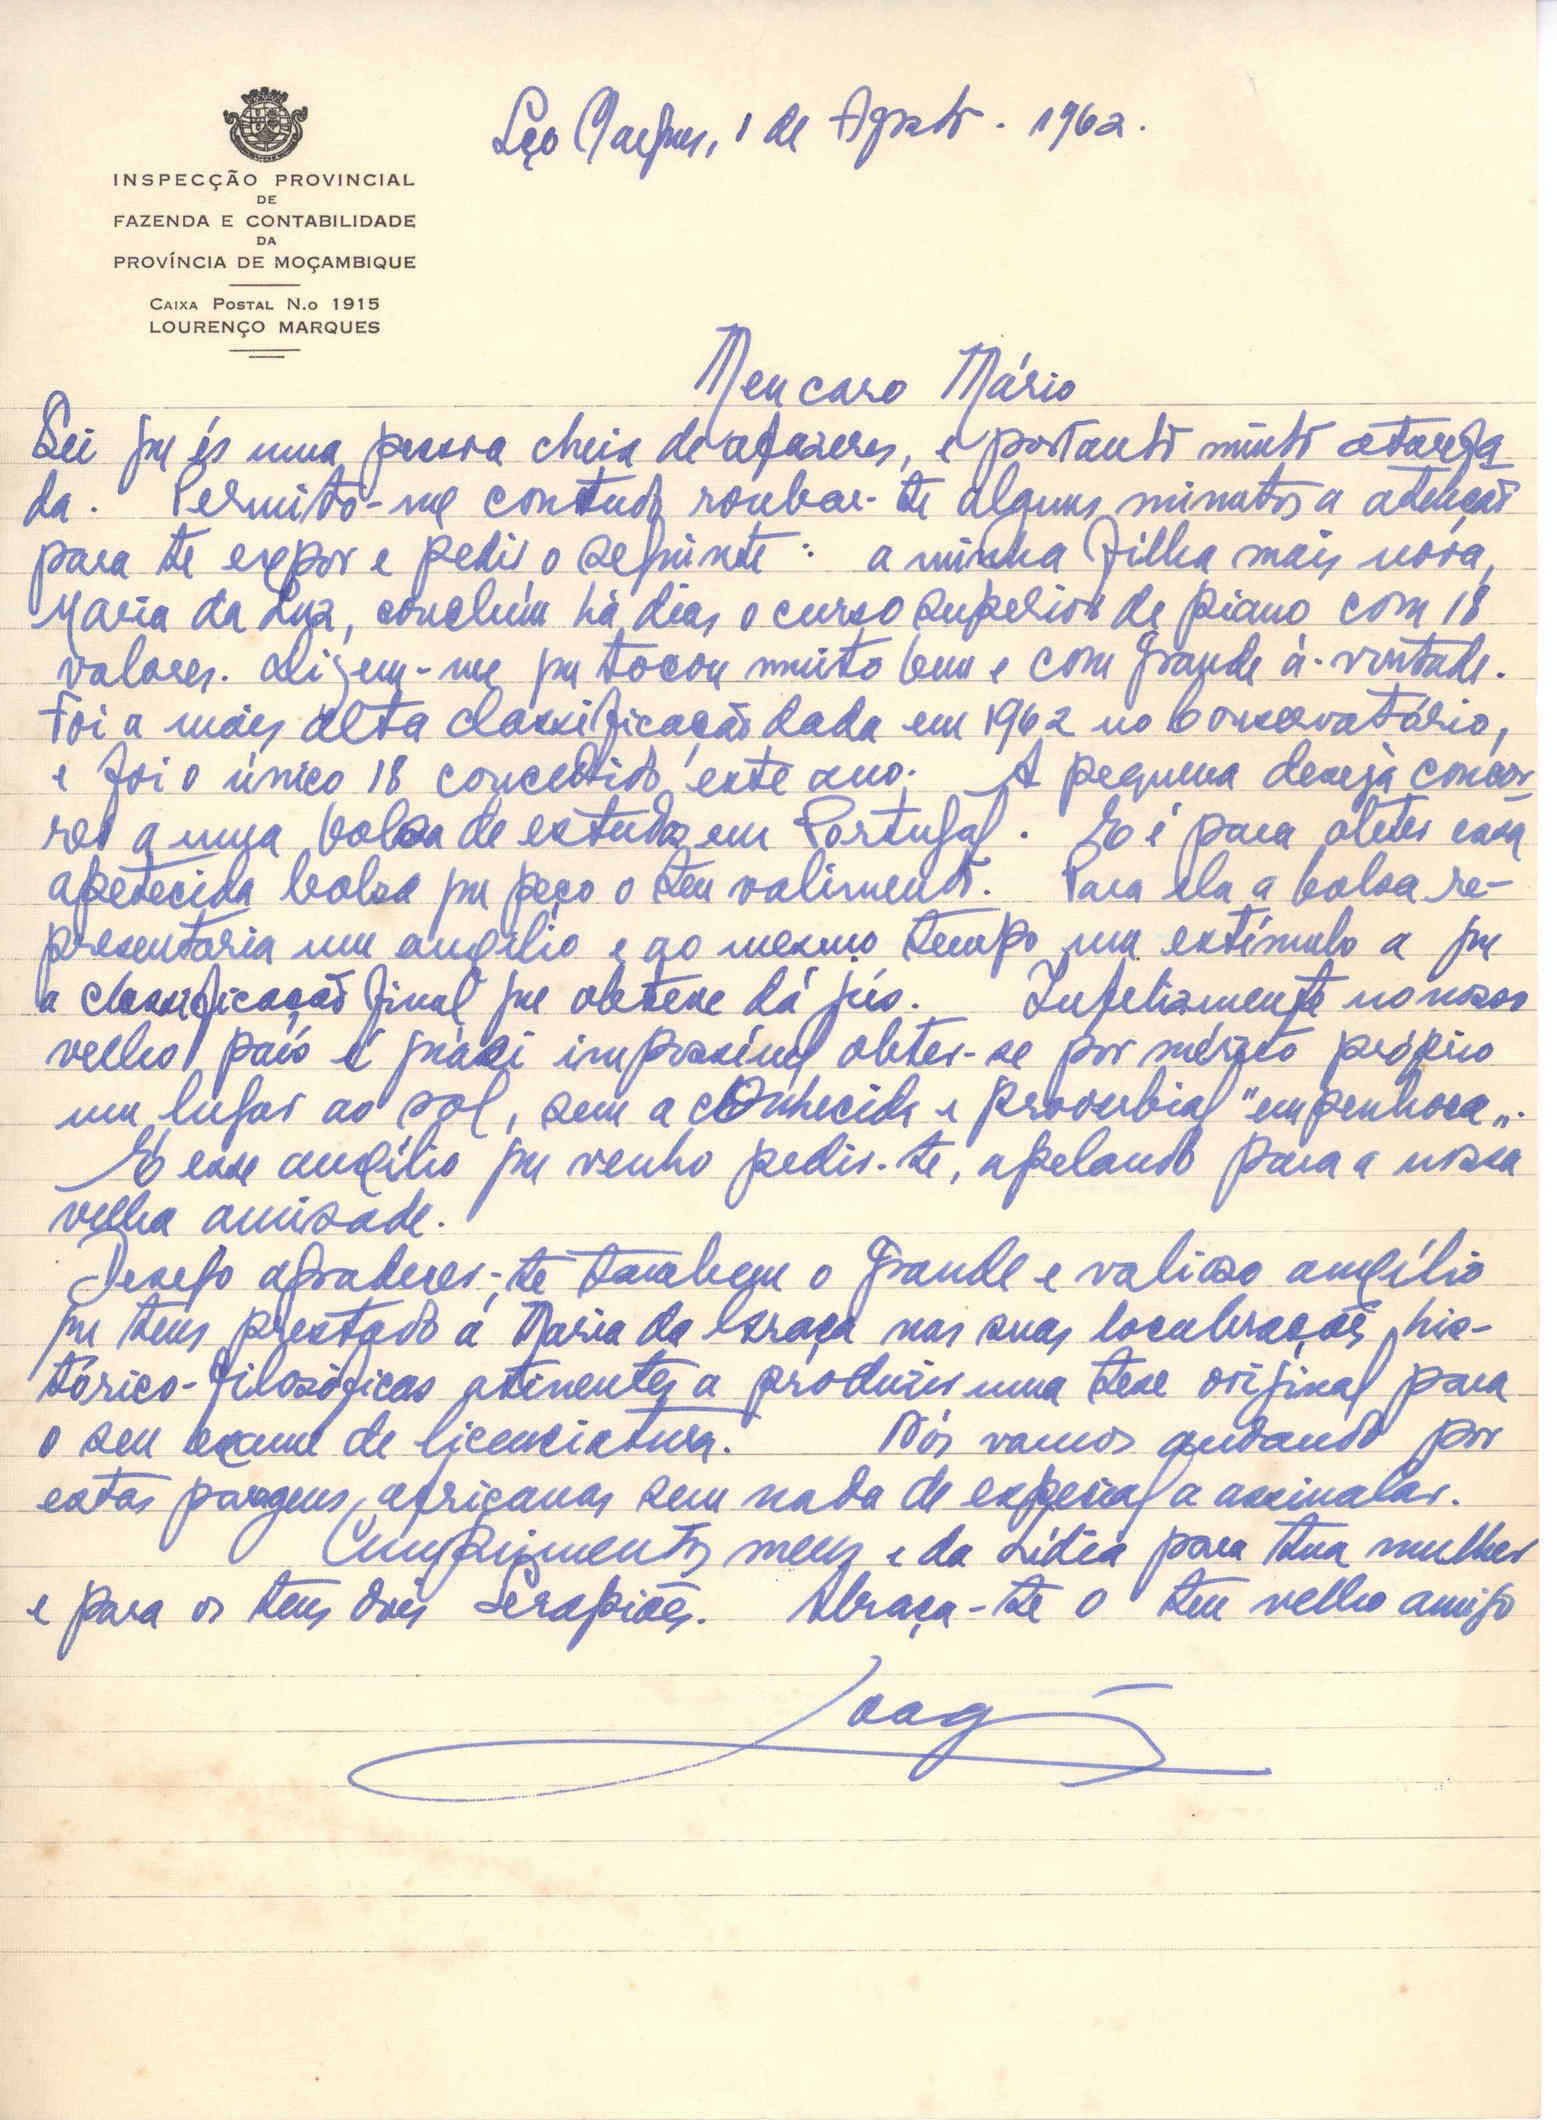 Lço Marques, 1 de Agosto - 1962.
INSPECÇÃO PROVINCIAL
DE
FAZENDA E CONTABILIDADE
DA
PROVÍNCIA DE MOÇAMBIQUE
CAIXA POSTAL N.o 1915
LOURENÇO MARQUES
Meu caro Mário
Sei que és uma pessoa cheia de afazeres, e portanto muito atarefa
da. Permito-me contudo roubar-te alguns minutos a atenção
para te expor e pedir o seguinte: a minha filha mais nova,
Maria da Luz, concluiu há dias o curso superior de piano com 18
valores. Dizem-me que tocou muito bem e com grande à-vontade.
Foi a mais alta classificação dada em 1962 no Conservatório,
e foi o único 18 concedido este ano. A pequena deseja concor
rer a uma bolsa de estudos em Portugal. E é para obter essa
apetecida bolsa que peço o teu valimento. Para ela a bolsa re-
presentaria um auxílio e ao mesmo tempo um estímulo a que
a classificação final que obteve dá jús. Infelizmente no nosso
velho país é quási impossível obter-se por mérito próprio
um lugar ao sol, sem a conhecida e proverbial "empenhoca".
É esse auxílio que venho pedir-te, apelando para a nossa
velha amizade.
Desejo agradecer-te tambem o grande e valioso auxílio
que tens prestado á Maria da Graça nas suas locubrações his-
tórico-filosóficas atinentes a produzir uma tese original para
o seu exame de licenciatura. Nós vamos andando por
estas paragens africanas sem nada de especial a assinalar.
Cumprimentos meus e da Lídia para tua mulher
e para os teus dois Serapiões. Abraça-te o teu velho amigo